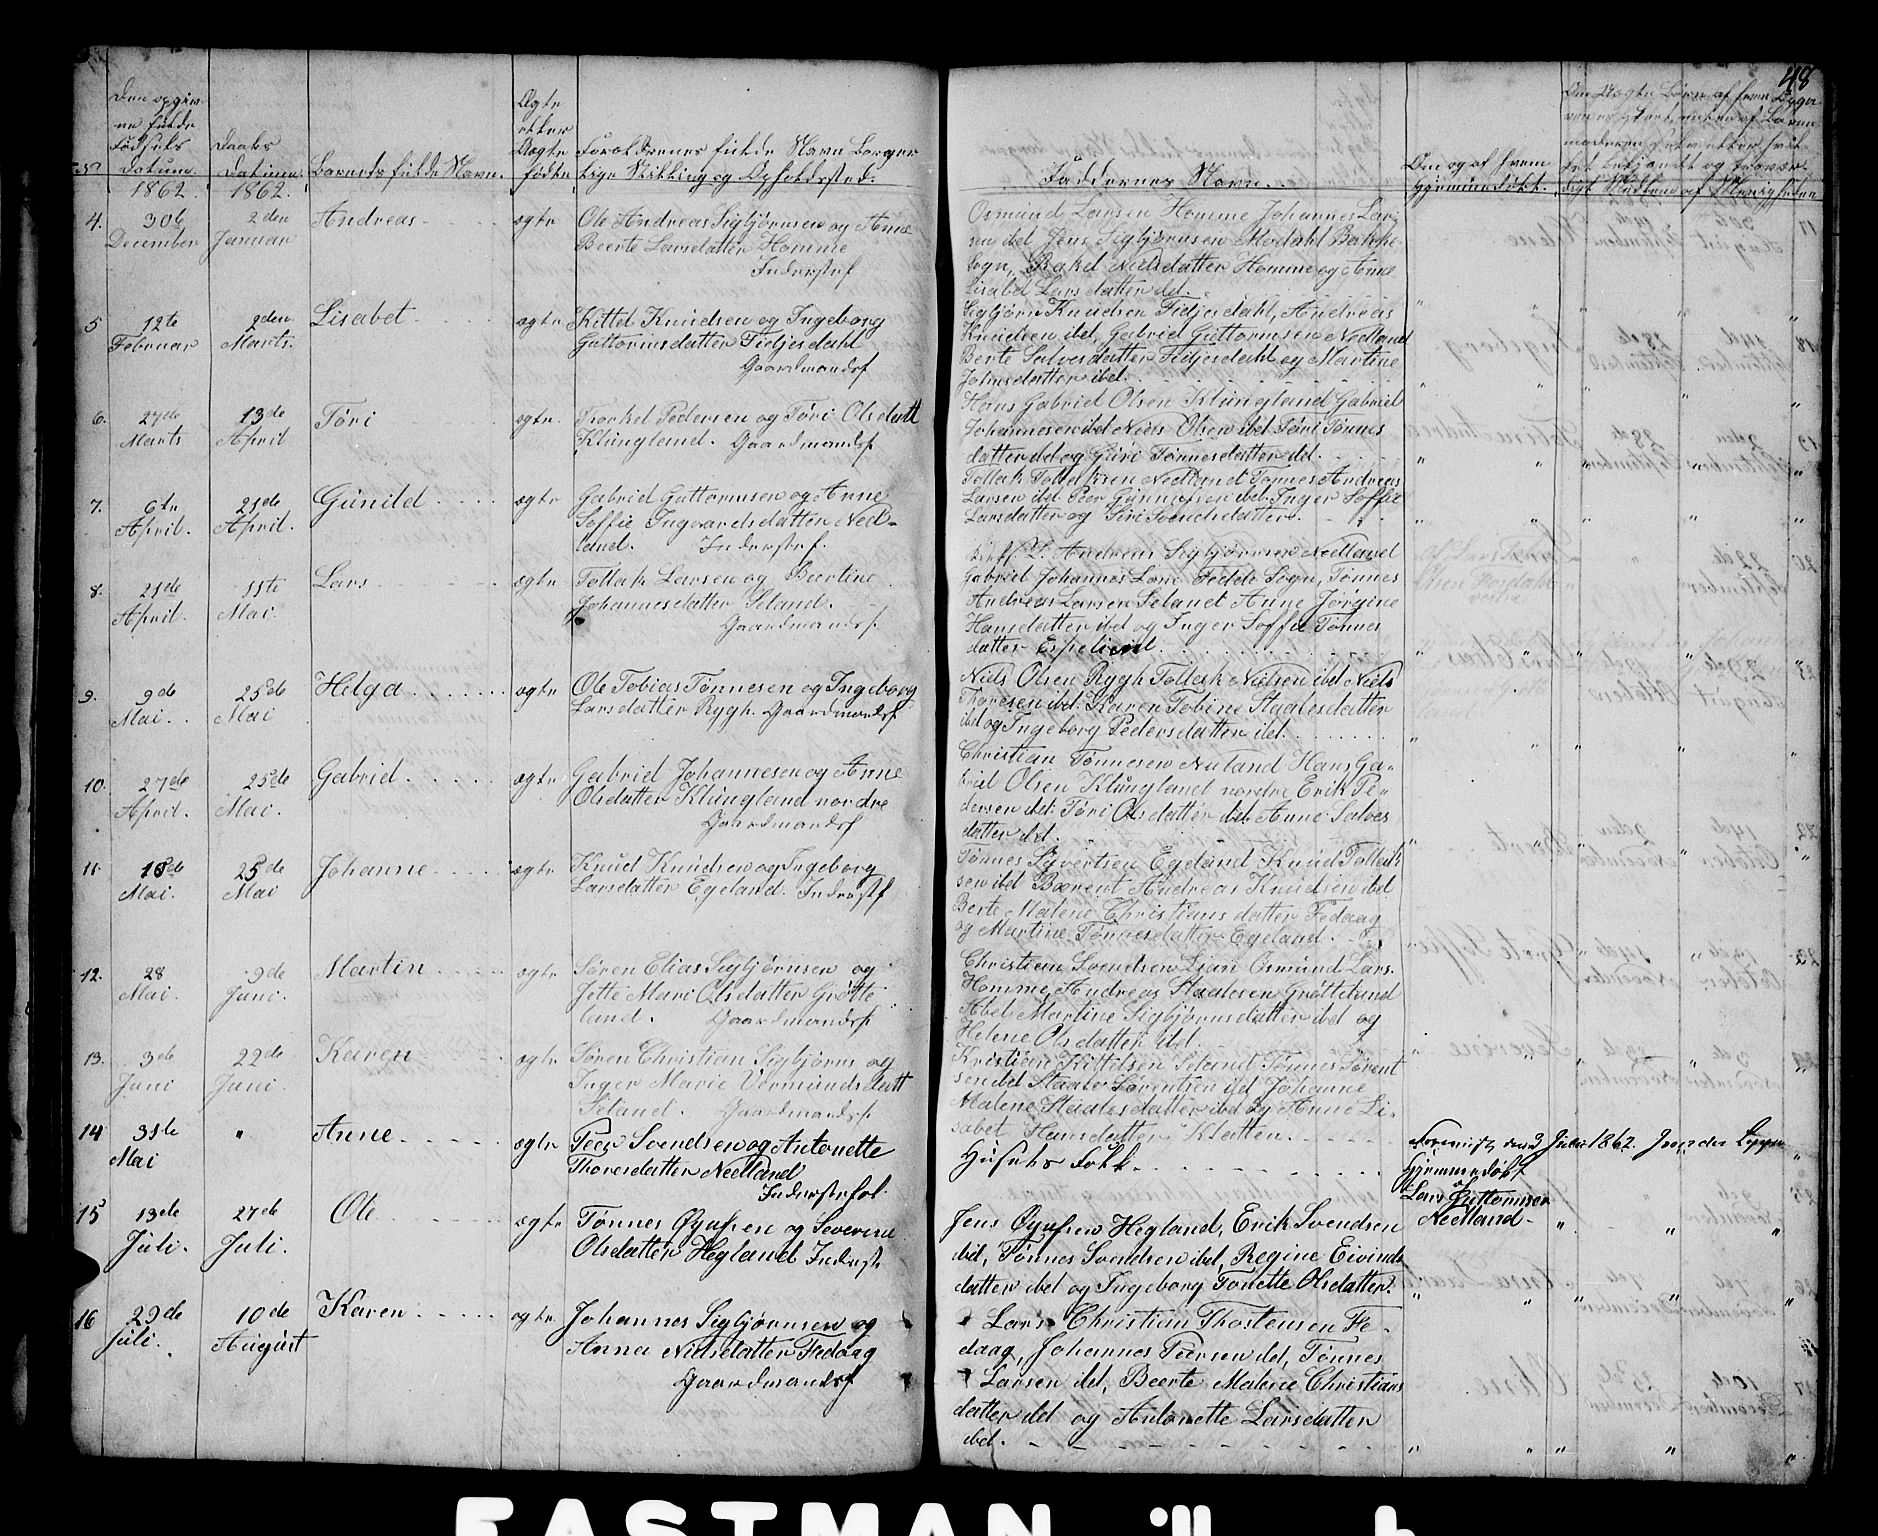 48
Den opgivne fulde Fødsels Datum.
Daabs Datum.
Barnets fulde Navn.
Ægte eller Uægte fødte
Forældrenes fulde Navn Borgerlige Stilling og Opholdssted.
Faddernes Navn.
Om og af hvem hjemmedøbt.
1862. 1862.
4. 30te December 2den Januar Andreas ægte
Ole Andreas Sigbjørnsen og Anne
Beerte Larsdatter Homme
Inderstef
Osmund Larsen Homme Johannes Lar-
sen ibd Jens Sigbjørnsen Mordahl Bakke
Sogn, Rakel Nielsdatter Homme og Anne
Lisabet Larsdatter ibd.
5 12te Februar 2den Marts. Lisabet ægte
Kittel Knudsen og Ingeborg
Guttormsdatter Fidjesdahl
Gaardmandsf
Sigbjørn Knudsen Fidjesdahl, Andreas
Knudsen ibd, Gabriel Guttormsen Nedland
Berte Salvesdatter Fidjesdahl og Martine
Johnsdatter ibd.
6. 27de Marts 13de April Tøri ægte.
Torkel Pedersen og Tøri Olsdatt
Klungland. Gaardmandsf
Hans Gabriel Olsen Klungland Gabriel
Johannesen ibd Niels Olsen ibd Tøri Tønnes
datter ibd og Guri Tønnesdatter ibd.
7. 6te April. 21de April. Gunild ægte
Gabriel Guttormsen og Anne
Soffie Ingvardsdatter Ned-
land. Inderstef.
Tollak Tollaksen Nedland Tønnes Andreas
Larsen ibd. Peer Gunnufsen ibd. Inger Soffie
Larsdatter og Siri Svendsdatter.
8. 21de April. 11te Mai. Lars ægte
Tollak Larsen og Beertine
Johannesdatter Seland.
Gaardmandsf.
Andreas Sigbjørnsen Nedland
Gabriel Johannes Loni Fedde Sogn, Tønnes
Andreas Larsen Seland Anne Jørgine
Hansdatter ibd og Inger Soffie Tønnes
datter Espeliend.
9. 9de Mai. 25de Mai Helga ægte
Ole Tobias Tønnesen og Ingeborg
Larsdatter Rygh. Gaardmandsf
Niels Olsen Rygh Tollak Nielsen ibd Niels
Thoresen ibd. Karen Tobine Staalesdatter
ibd og Ingeborg Pedersdatter ibd.
10. 27de April. 25de Mai. Gabriel ægte
Gabriel Johannesen og Anne
Olsdatter Klungland nordre
Gaardmandsf
Christian Tønnesen Nuland Hans Ga-
briel Olsen Klungland nordre Erik Pe-
dersen ibd. Tøri Olsdatter ibd Anne Salves
datter ibd.
11. 18de Mai. 25de Mai Johanne ægte
Knud Knudsen og Ingeborg
Larsdatter Egeland. Inderstf
Tønnes Syvertsen Egeland Knud Tollak
sen ibd Bærent Andreas Knudsen ibd
Berte Malene Christians datter Fedaag
og Martine Tønnesdatter Egeland.
12. 28 Mai. 9de Juni. Martin ægte
Søren Elias Sigbjørnsen og
Jette Mari Olsdatter Grøtte
land. Gaardmandsf.
Christian Svendsen Lian Osmund Lars.
Homme, Andreas Staalesen Grøtteland
Abel Martine Sigbjørnsdatter ibd og
Helene Olsdatter ibd.
13. 3de Juni 22de Juni. Karen ægte
Søren Christian Sigbjørns og
Inger Marie Vermundsdatt
Seland. Gaardmandsf.
Kristian Kittelsen Seland Tønnes Sørent
sen ibd Staale Sørentsen ibd Johanne
Malene Staalesdatter ibd og Anne Li-
sabet Hansdatter Kletten.
14 31te Mai " Anne ægte
Peer Svendsen og Antonette
Thoresdatter Nedland
Inderstefol.
Husets Folk.
Fremvist den 9 Juli 1862.
Hjemmedøbt
af
Lars Guttormsen
Nedland
15 13de Juli. 27de Juli. Ole ægte
Tønnes Øyufsen og Severine
Olsdatter Hegland Inderstf
Jens Øyufsen Hegland, Erik Svendsen
ibd, Tønnes Svendsen ibd, Regine Eivinds
datter ibd og Ingeborg Tonette Olsdatter.
16 29de Juli. 10de August Karen ægte
Johannes Sigbjørnsen og
Anna Nielsdatter Fedaag
Gaardmandsf
Lars Christian Thostensen Fe-
daag, Johannes Peersen ibd, Tønnes
Larsen ibd, Beerte Malene Christians
datter ibd og Antonette Larsdatter
ibd.
EASTMAN